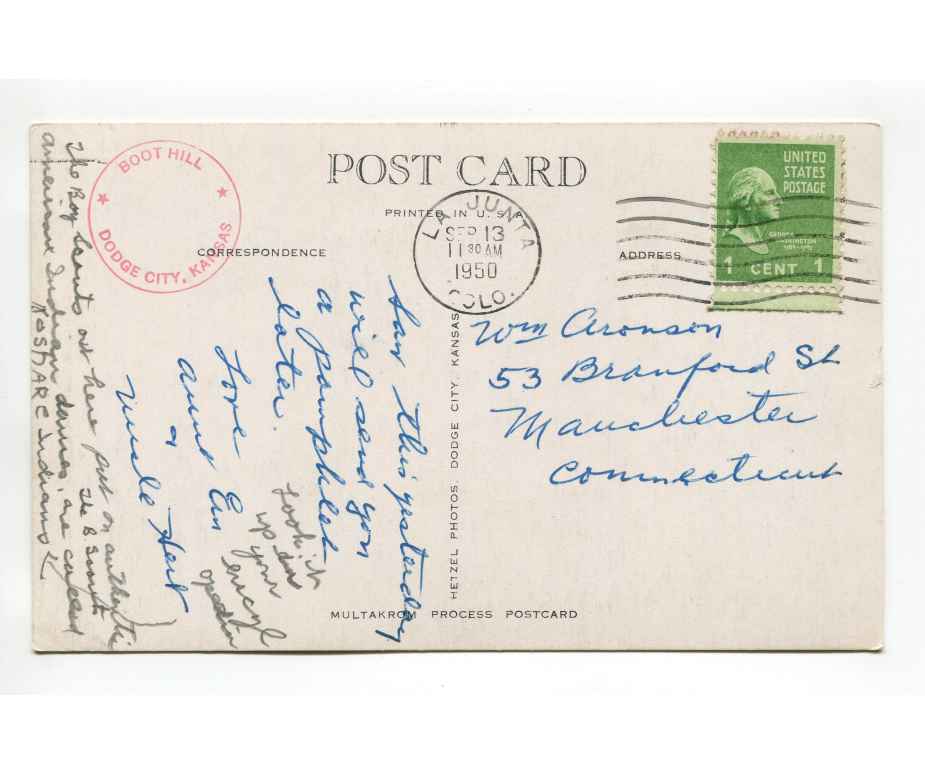 POST CARD
PRINTED IN U. S. A.
CORRESPONDENCE
ADDRESS
BOOT HILL
DODGE CITY, KANSAS
LA JUNTA
SEP 13
11 30 AM
1950
COLO.
UNITED
STATES
POSTAGE
GEORGE
WASHINGTON
1 CENT 1
Saw this yesterday
will send you
a pamphlet
later.
Love
Aunt Em
&
Uncle Herb
Look it
up in
your
The Boy Scouts out here put on authentic
american Indian dances, are called
The B. Scouts
KOSHARE Indians
Wm Aronson
53 Branford St
Manchester
Connecticut
HETZEL PHOTOS, DODGE CITY, KANSAS
MULTAKROM PROCESS POSTCARD